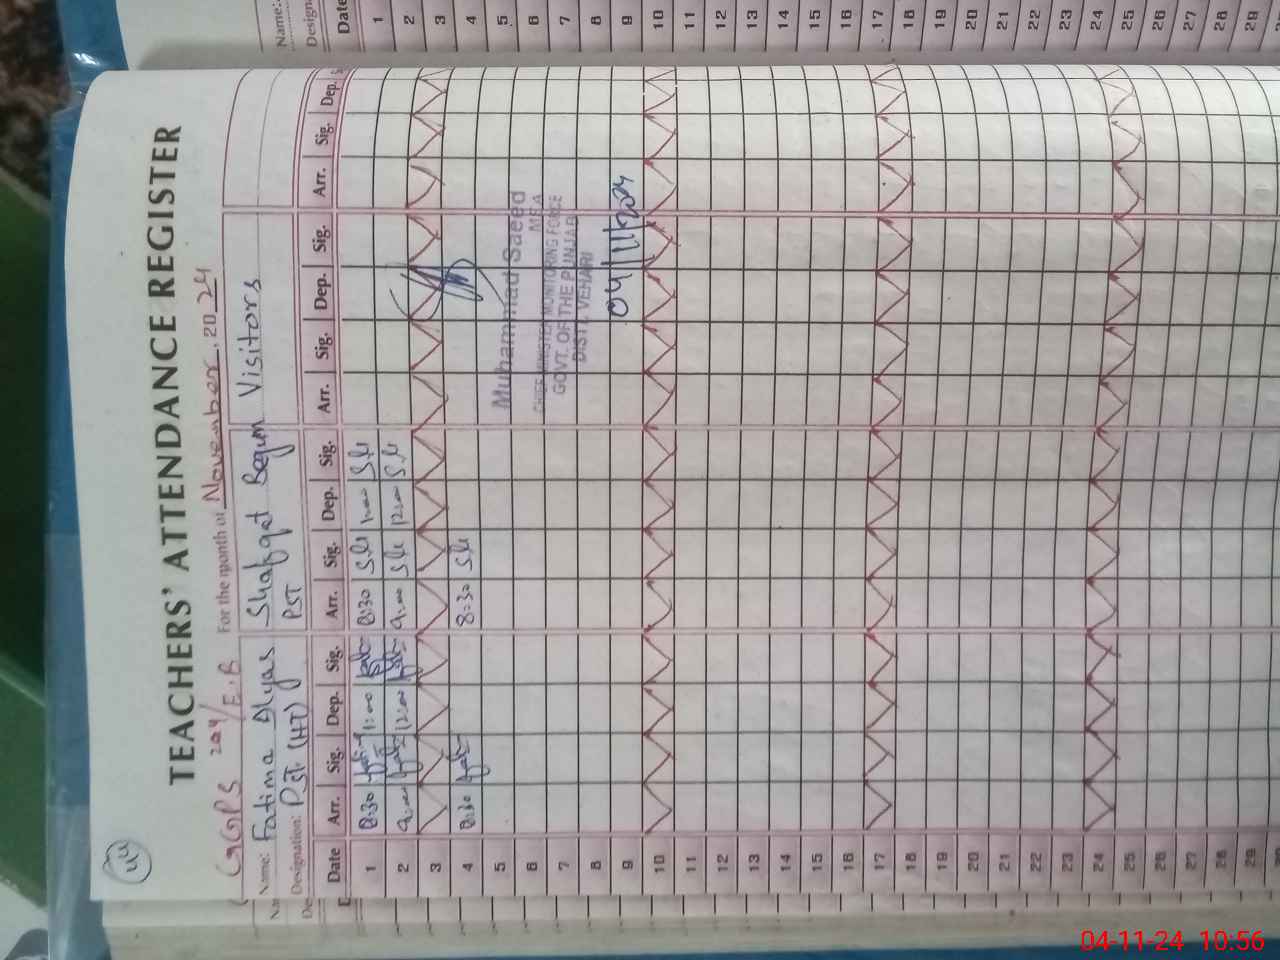 44
TEACHERS' ATTENDANCE REGISTER
GGPS 204/E.B For the month of November. 2024
Name: Fatima Ilyas Shafqat Begum Visitors
Designation: PST (HT) PST
Date Arr. Sig. Dep. Sig. Arr. Sig. Dep. Sig. Arr. Sig. Dep. Sig. Arr. Sig. Dep. S
1 8:30 1:00 8:30 1:00
2 9:00 12:00 9:00 12:00
3
4 8:30 8:30
5
6
7
8
9
10
11
12
13
14
15
16
17
18
19
20
21
22
23
24
25
26
27
28
29
30
Muhammad Saeed
MEA
CHIEF MINISTER MONITORING FORCE
GOVT. OF THE PUNJAB
DISTT. VEHARI
04/11/2024
Name:
Design
Date
1
2
3
4
5
6
7
8
9
10
11
12
13
14
15
16
17
18
19
20
21
22
23
24
25
26
27
28
29
04-11-24 10:56